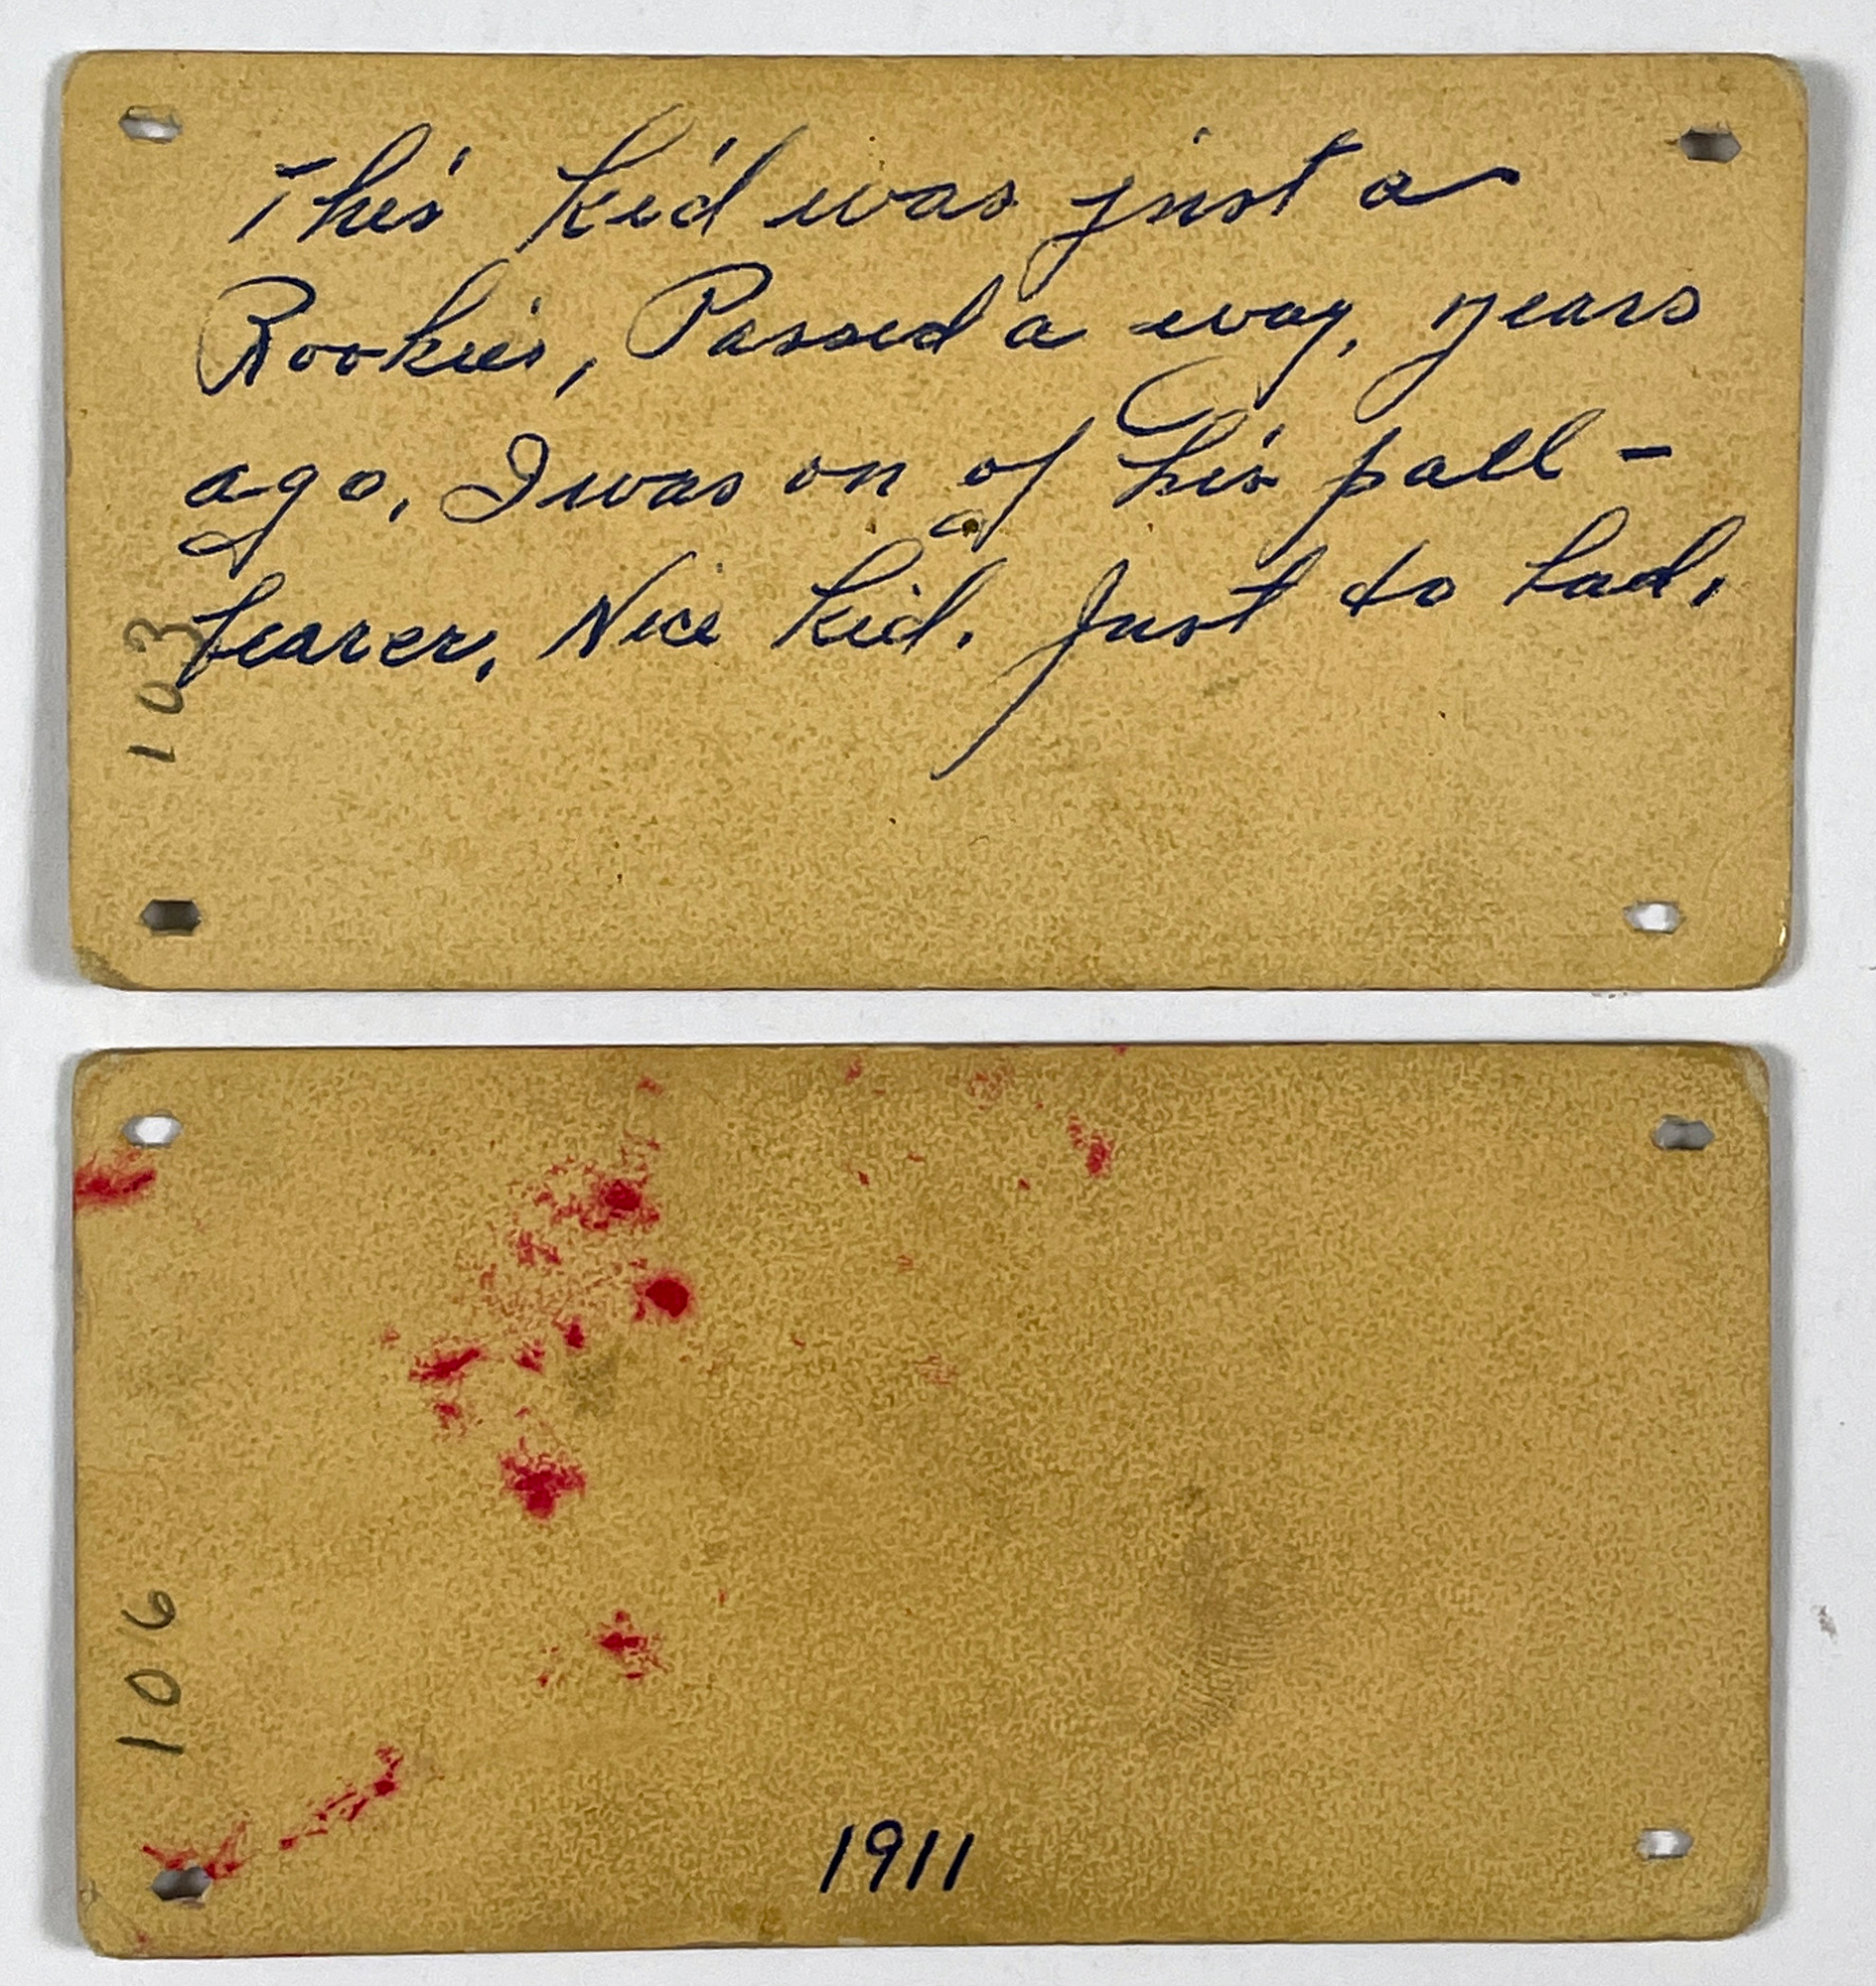 This kid was just a
Rookie, Passed a way, years
ago, I was on of his pall-
bearer. Nice kid. Just to bad.
103
106
1911